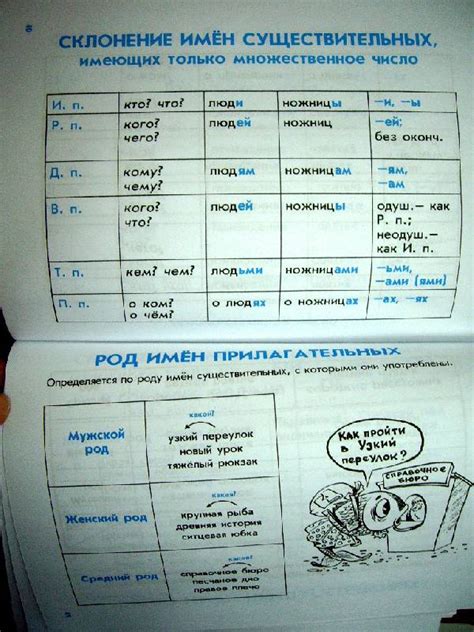 СКЛОНЕНИЕ ИМЁН СУЩЕСТВИТЕЛЬНЫХ,
имеющих только множественное число
И. п. кто? что? люди ножницы –и, –ы
Р. п. кого? людей ножниц –ей;
чего? без оконч.
Д. п. кому? людям ножницам –ям,
чему? –ам
В. п. кого? людей ножницы одуш.– как
что? Р. п.;
неодуш.–
как И. п.
Т. п. кем? чем? людьми ножницами –ьми,
–ами (ями)
П. п. о ком? о людях о ножницах –ах, –ях
о чём?
РОД ИМЁН ПРИЛАГАТЕЛЬНЫХ
Определяется по роду имён существительных, с которыми они употреблены.
Мужской род
какой?
узкий переулок
новый урок
тяжёлый рюкзак
Женский род
какая?
крупная рыба
древняя история
ситцевая юбка
Средний род
какое?
справочное бюро
песчаное дно
правое плечо
Как пройти
в Узкий
переулок?
СПРАВОЧНОЕ
БЮРО